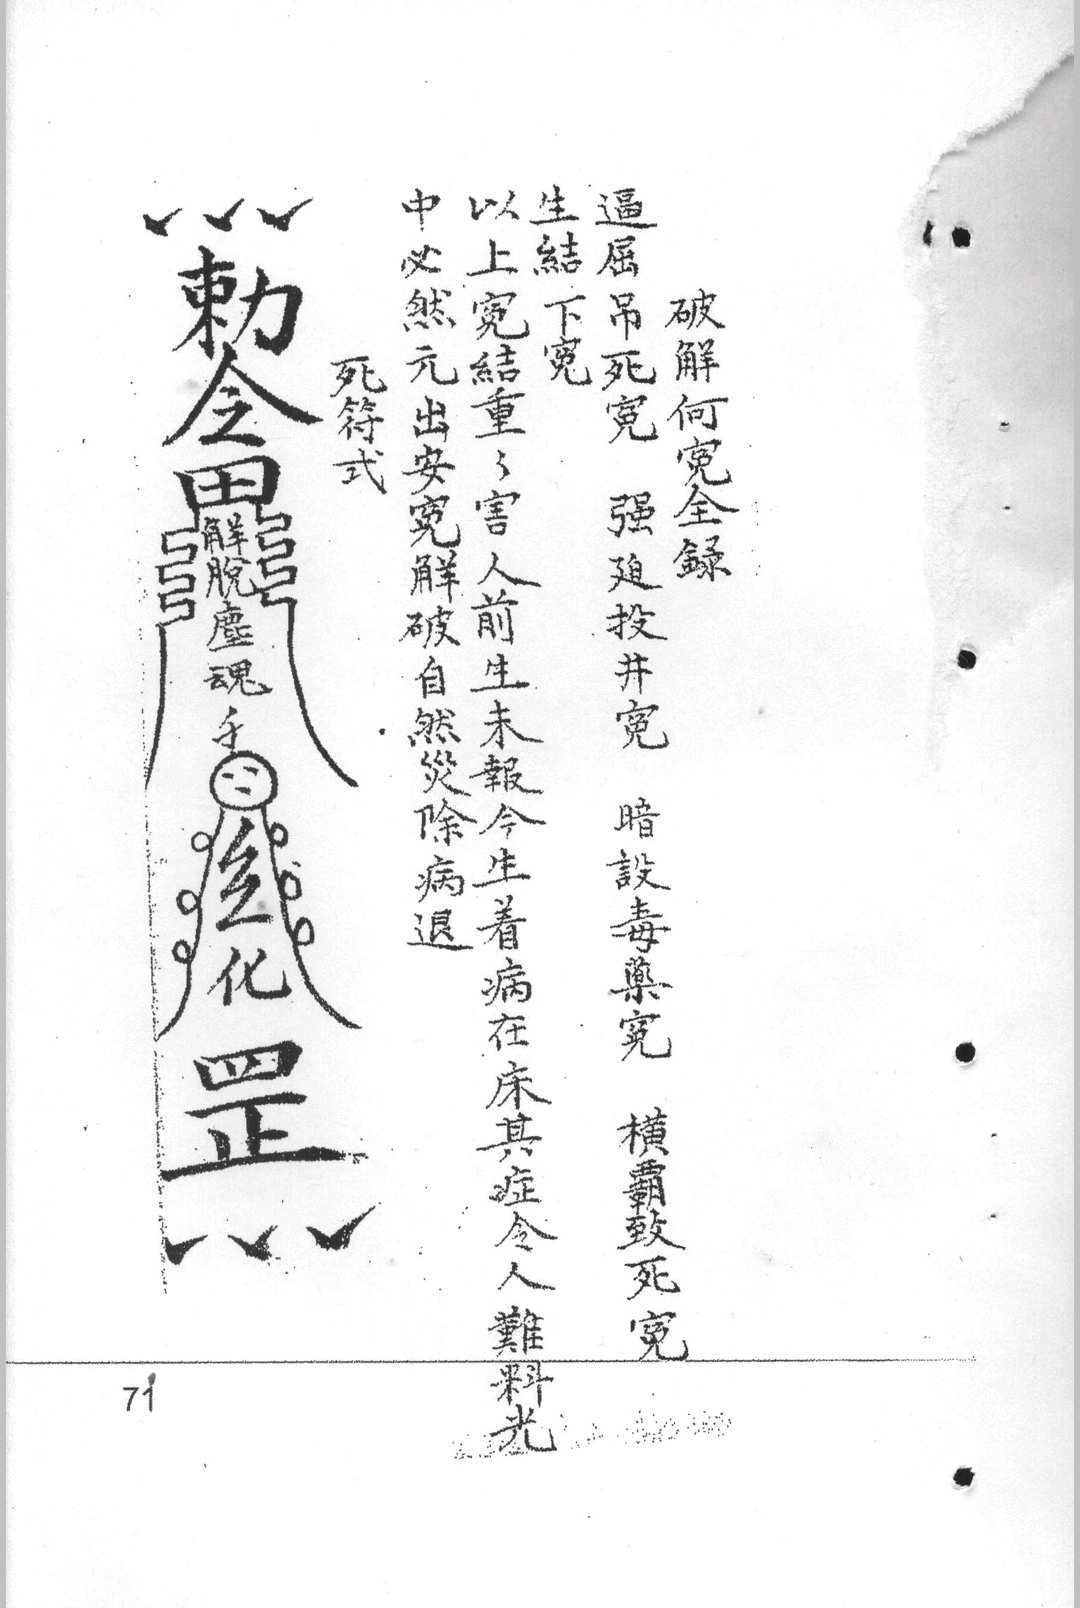 破解何寃全録
逼屈吊死寃 强廹投井寃 暗設毒藥寃 横霸致死寃
生結下寃
以上寃結重々害人前生未報今生着病在床其症令人難料光
中必然元出安寃解破自然災除病退
死符式
勅令
解脫塵魂
化
罡
71